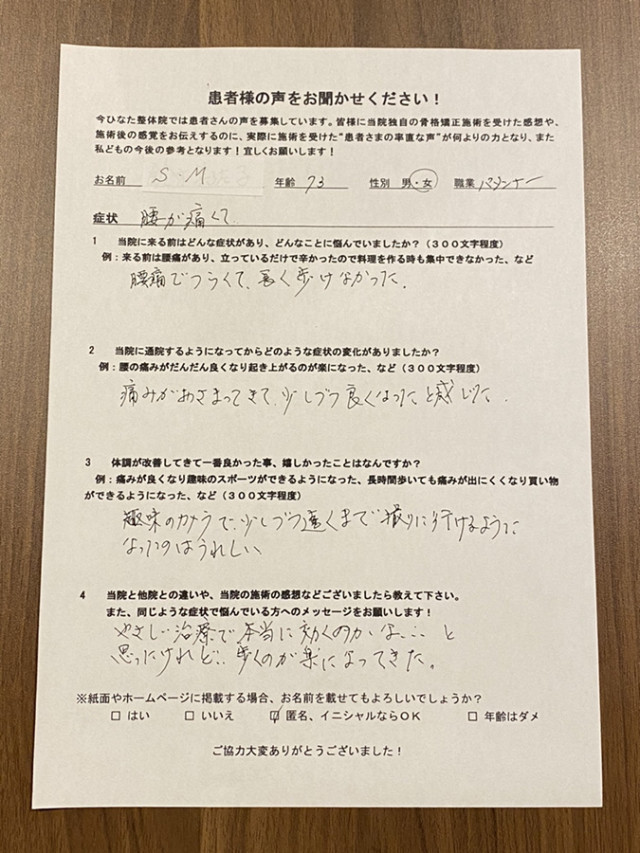 患者様の声をお聞かせください！
今ひなた整体院では患者さんの声を募集しています。皆様に当院独自の骨格矯正施術を受けた感想や、
施術後の感覚をお伝えするのに、実際に施術を受けた“患者さまの率直な声”が何よりの力となり、また
私どもの今後の参考となります！宜しくお願いします！
お名前 S・M 年齢 73 性別 男・女 職業
症状 腰が痛くて
1 当院に来る前はどんな症状があり、どんなことに悩んでいましたか？（３００文字程度）
例：来る前は腰痛があり、立っているだけで辛かったので料理を作る時も集中できなかった、など
腰痛でつらくて、長く歩けなかった。
2 当院に通院するようになってからどのような症状の変化がありましたか？
例：腰の痛みがだんだん良くなり起き上がるのが楽になった、など（３００文字程度）
痛みがおさまってきて、少しづつ良くなったと感じた。
3 体調が改善してきて一番良かった事、嬉しかったことはなんですか？
例：痛みが良くなり趣味のスポーツができるようになった、長時間歩いても痛みが出にくくなり買い物
ができるようになった、など（３００文字程度）
趣味のカメラで、少しづつ遠くまで撮りに行けるように
なったのはうれしい
4 当院と他院との違いや、当院の施術の感想などございましたら教えて下さい。
また、同じような症状で悩んでいる方へのメッセージをお願いします！
やさしい治療で本当に効くのかな・・・と
思ったけれど・・歩くのが楽になってきた。
※紙面やホームページに掲載する場合、お名前を載せてもよろしいでしょうか？
□ はい □ いいえ ☑ 匿名、イニシャルならＯＫ □ 年齢はダメ
ご協力大変ありがとうございました！